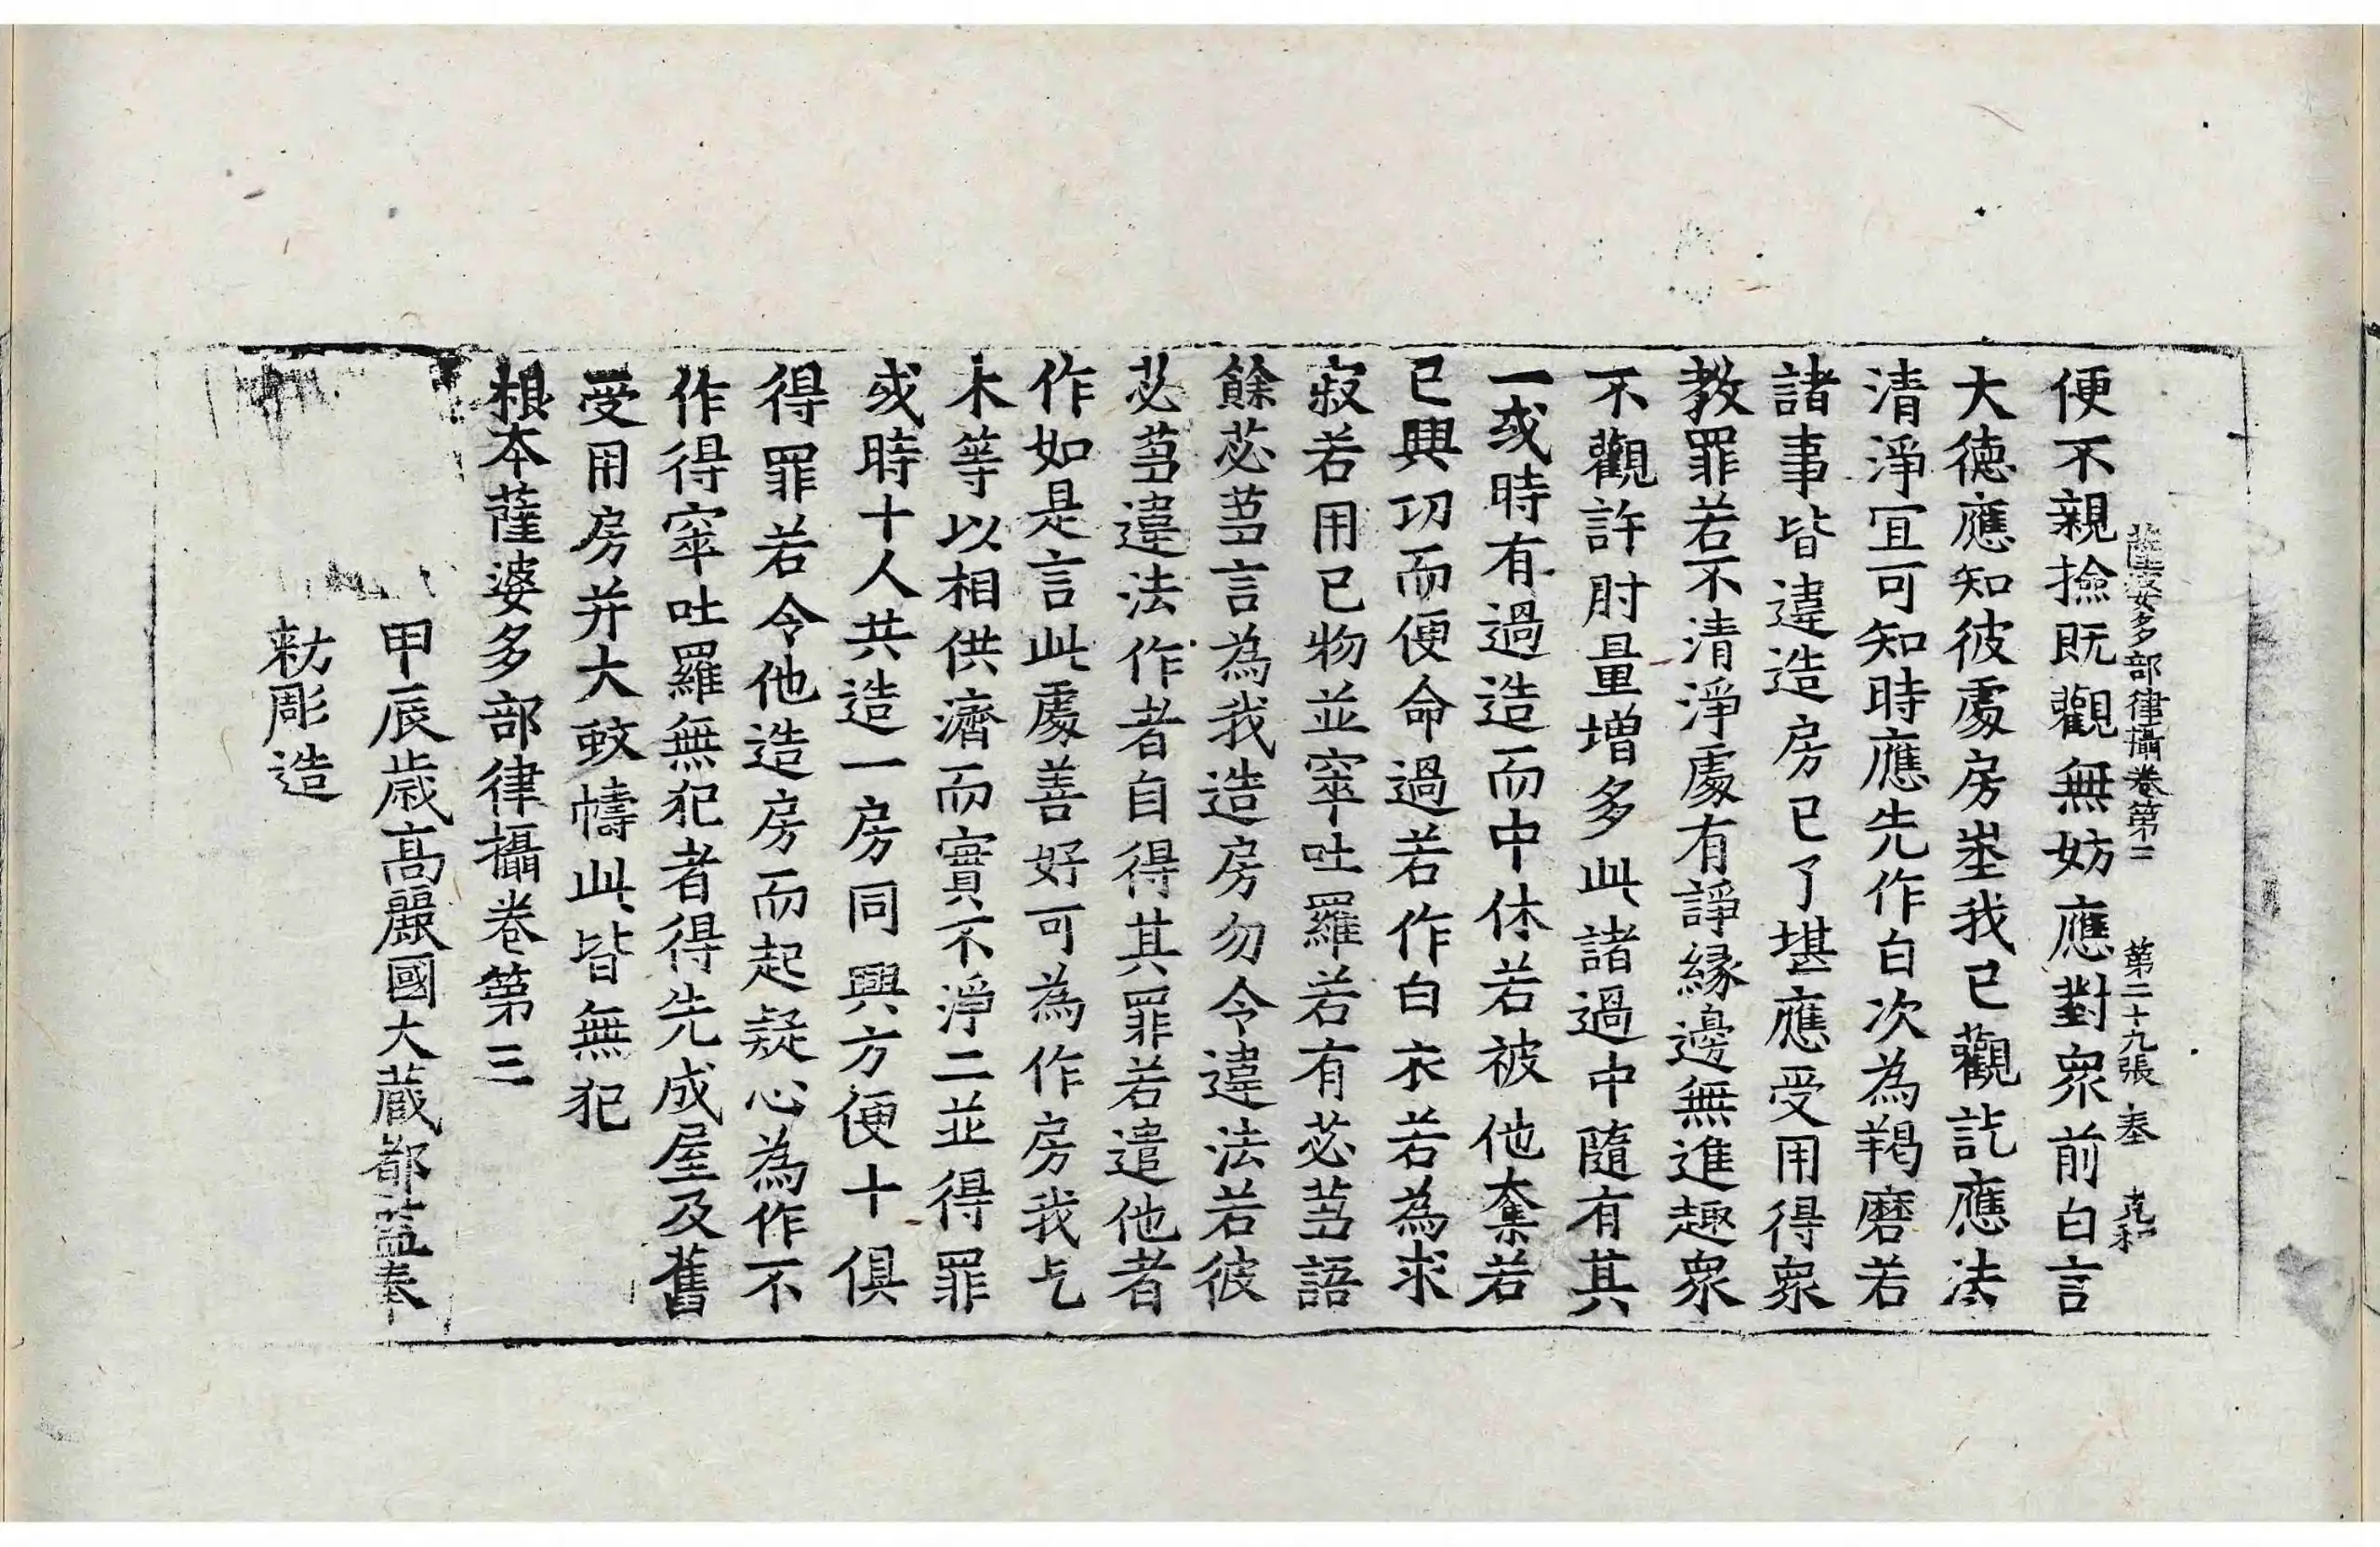 薩婆多部律攝卷第三 第二十九張 奉
便不親撿既觀無妨應對衆前白言
大德應知彼處房㘴我已觀訖應法
清淨冝可知時應先作白次為羯磨若
諸事皆違造房已了堪應受用得衆
教罪若不清淨處有諍緣邊無進趣衆
不觀許肘量增多此諸過中隨有其
一或時有過造而中休若被他奪若
已興功而便命過若作白衣若為求
寂若用已物並窣吐羅若有苾芻語
餘苾芻言為我造房勿令違法若彼
苾芻違法作者自得其罪若遣他者
作如是言此處善好可為作房我乞
木等以相供濟而實不淨二並得罪
或時十人共造一房同興方便十俱
得罪若令他造房而起疑心為作不
作得窣吐羅無犯者得先成屋及舊
受用房并大蚊幬此皆無犯
根本薩婆多部律攝卷第三
甲辰歲高麗國大藏都監奉
勑彫造